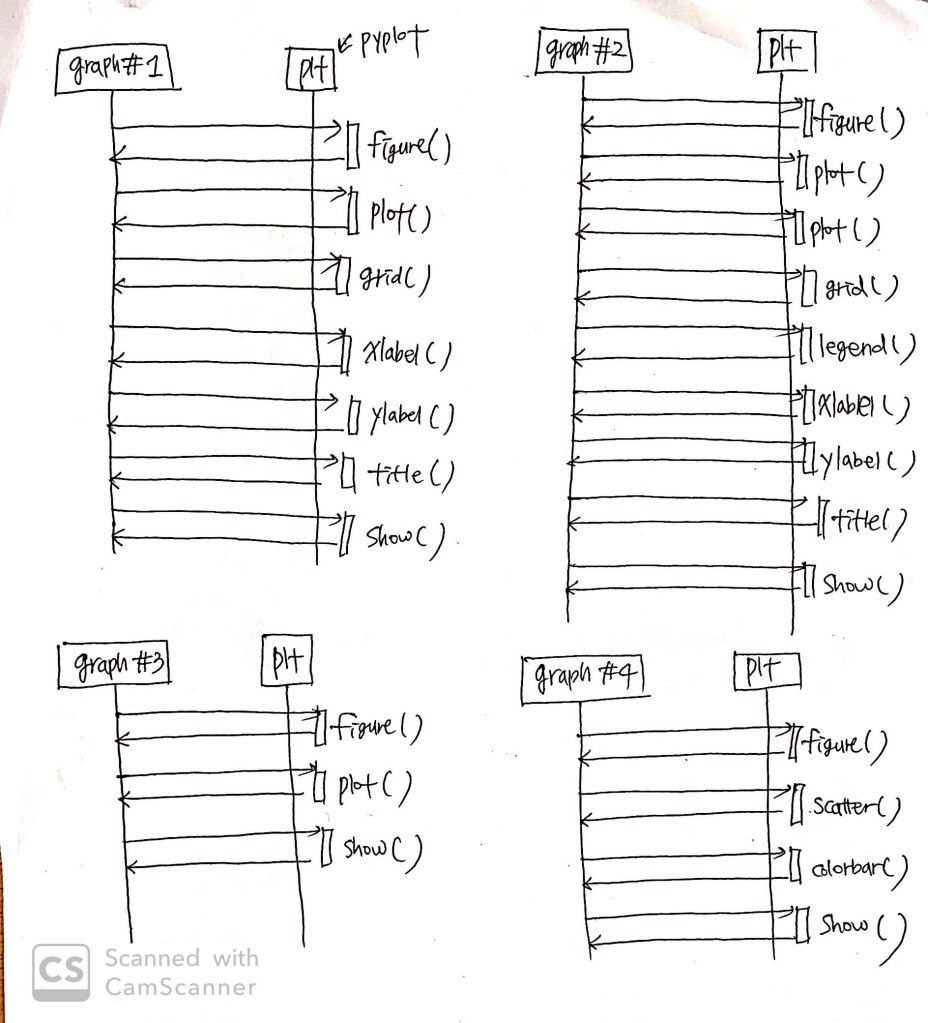 graph#1
plt
pyplot
figure()
plot()
grid()
xlabel()
ylabel()
title()
show()
graph#2
plt
figure()
plot()
plot()
grid()
legend()
xlabel()
ylabel()
title()
show()
graph#3
plt
figure()
plot()
show()
graph#4
plt
figure()
scatter()
colorbar()
show()
CS
Scanned with
CamScanner